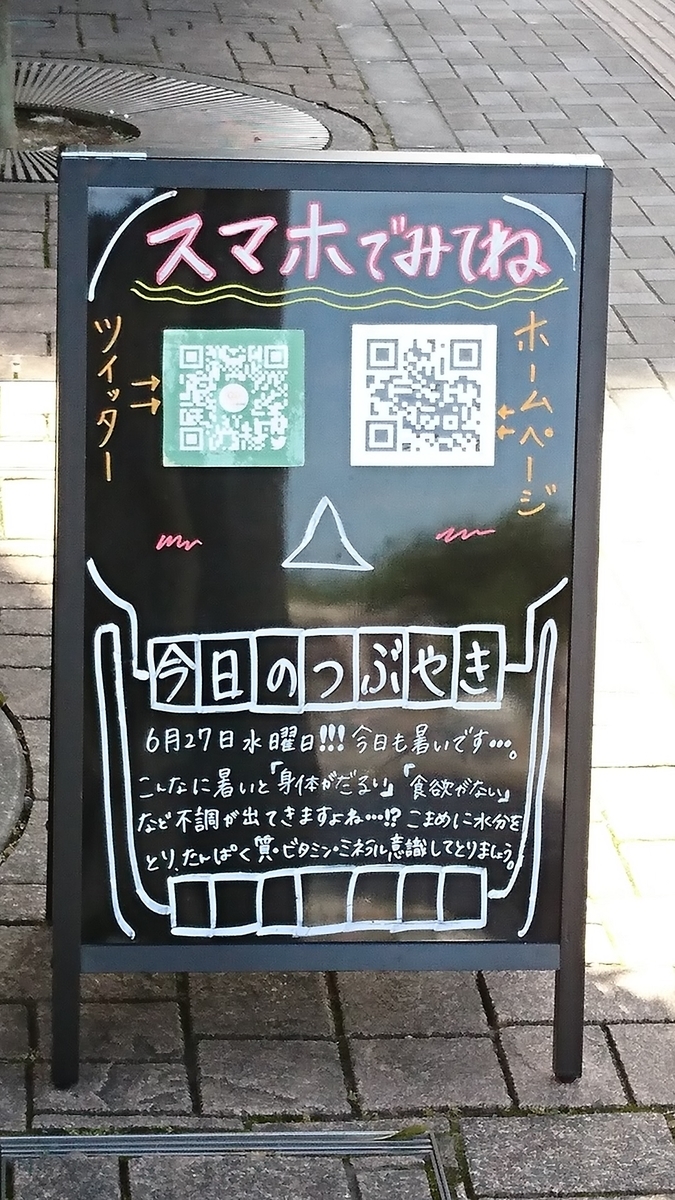 スマホでみてね
ツイッター
ホームページ
今日のつぶやき
6月27日水曜日!!!今日も暑いです…。
こんなに暑いと「身体がだるい」「食欲がない」
など不調が出てきますよね…!?こまめに水分を
とり、たんぱく質・ビタミン・ミネラル意識してとりましょう。